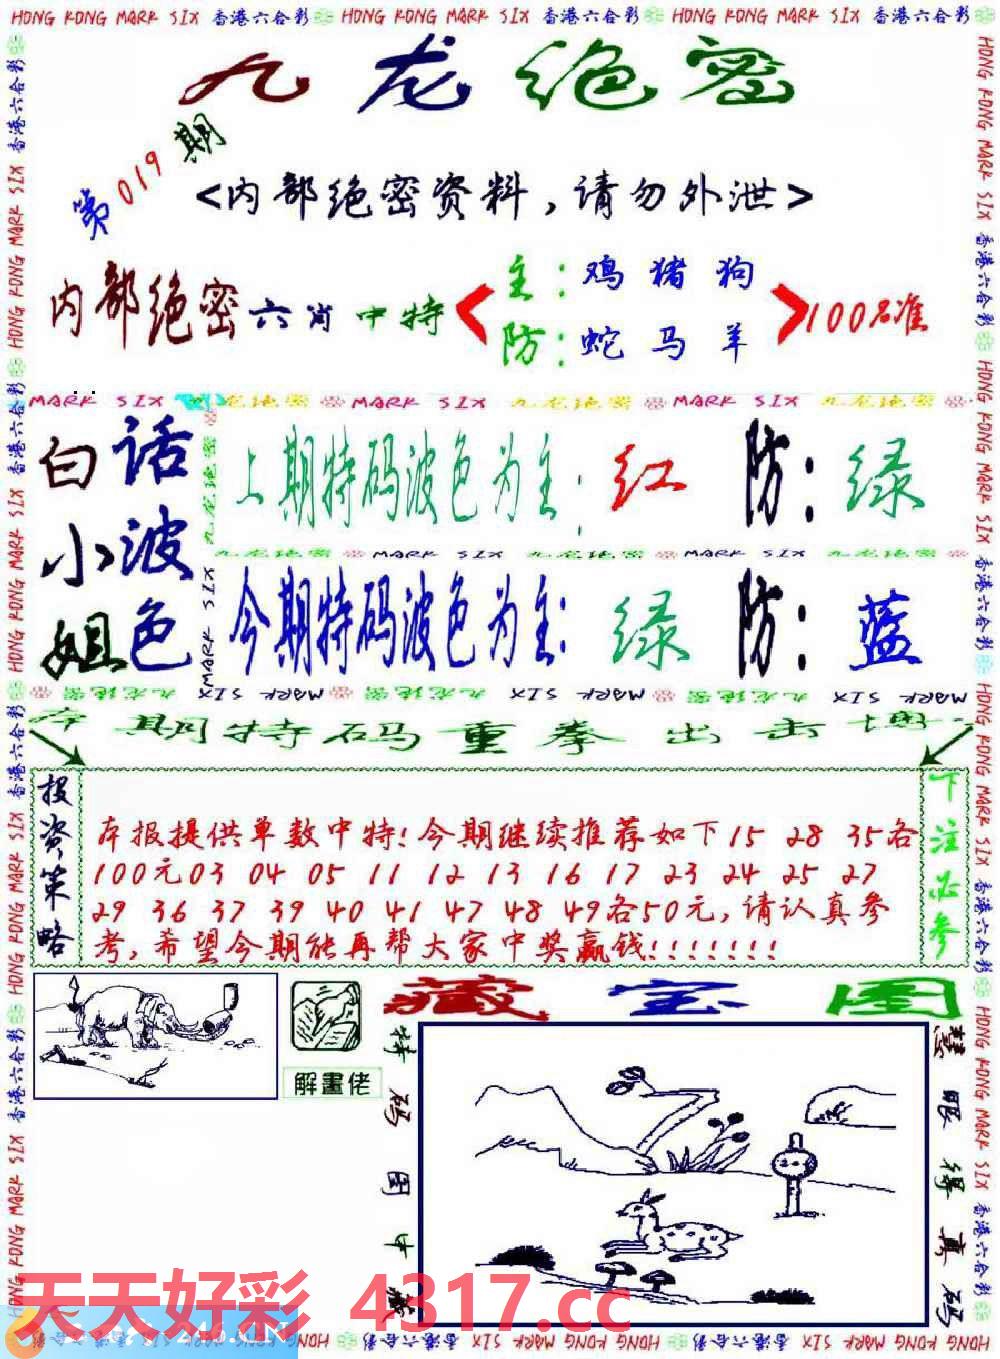 HONG KONG MARK SIX 香港六合彩 HONG KONG MARK SIX 香港六合彩 HONG KONG MARK SIX 香港六合彩
九龙绝密
第019期
<内部绝密资料,请勿外泄>
内部绝密六肖中特
主:鸡猪狗
防:蛇马羊
100%准
MARK SIX 九龙绝密 MARK SIX 九龙绝密 MARK SIX 九龙绝密
白小姐
话波色
上期特码波色为主:红 防:绿
九龙绝密 MARK SIX 九龙绝密 MARK SIX 九龙绝密
今期特码波色为主:绿 防:蓝
MARK SIX 九龙绝密 MARK SIX 九龙绝密 MARK SIX 九龙绝密
本期特码重拳出击
投资策略
本报提供单数中特!今期继续推荐如下15 28 35各
100元03 04 05 11 12 13 16 17 23 24 25 27
29 36 37 39 40 41 47 48 49各50元,请认真参
考,希望今期能再帮大家中奖赢钱!!!!!!!
下注必参
解畫佬
藏宝图
特码图中藏
慧眼得真码
天天好彩 4317.cc
HONG KONG MARK SIX 香港六合彩 HONG KONG MARK SIX 香港六合彩